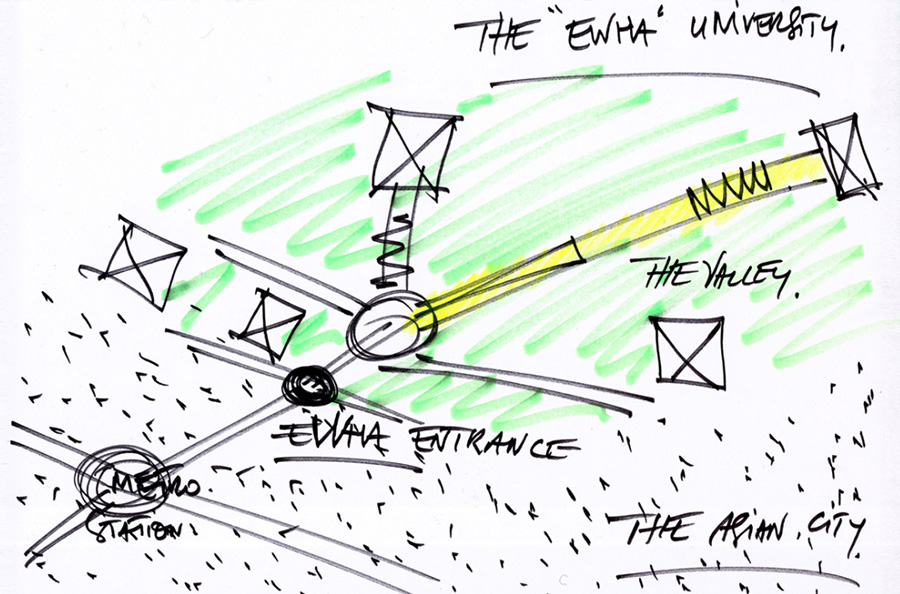 THE "EWHA" UNIVERSITY.
THE VALLEY.
EWHA ENTRANCE
METRO
STATION.
THE ASIAN CITY